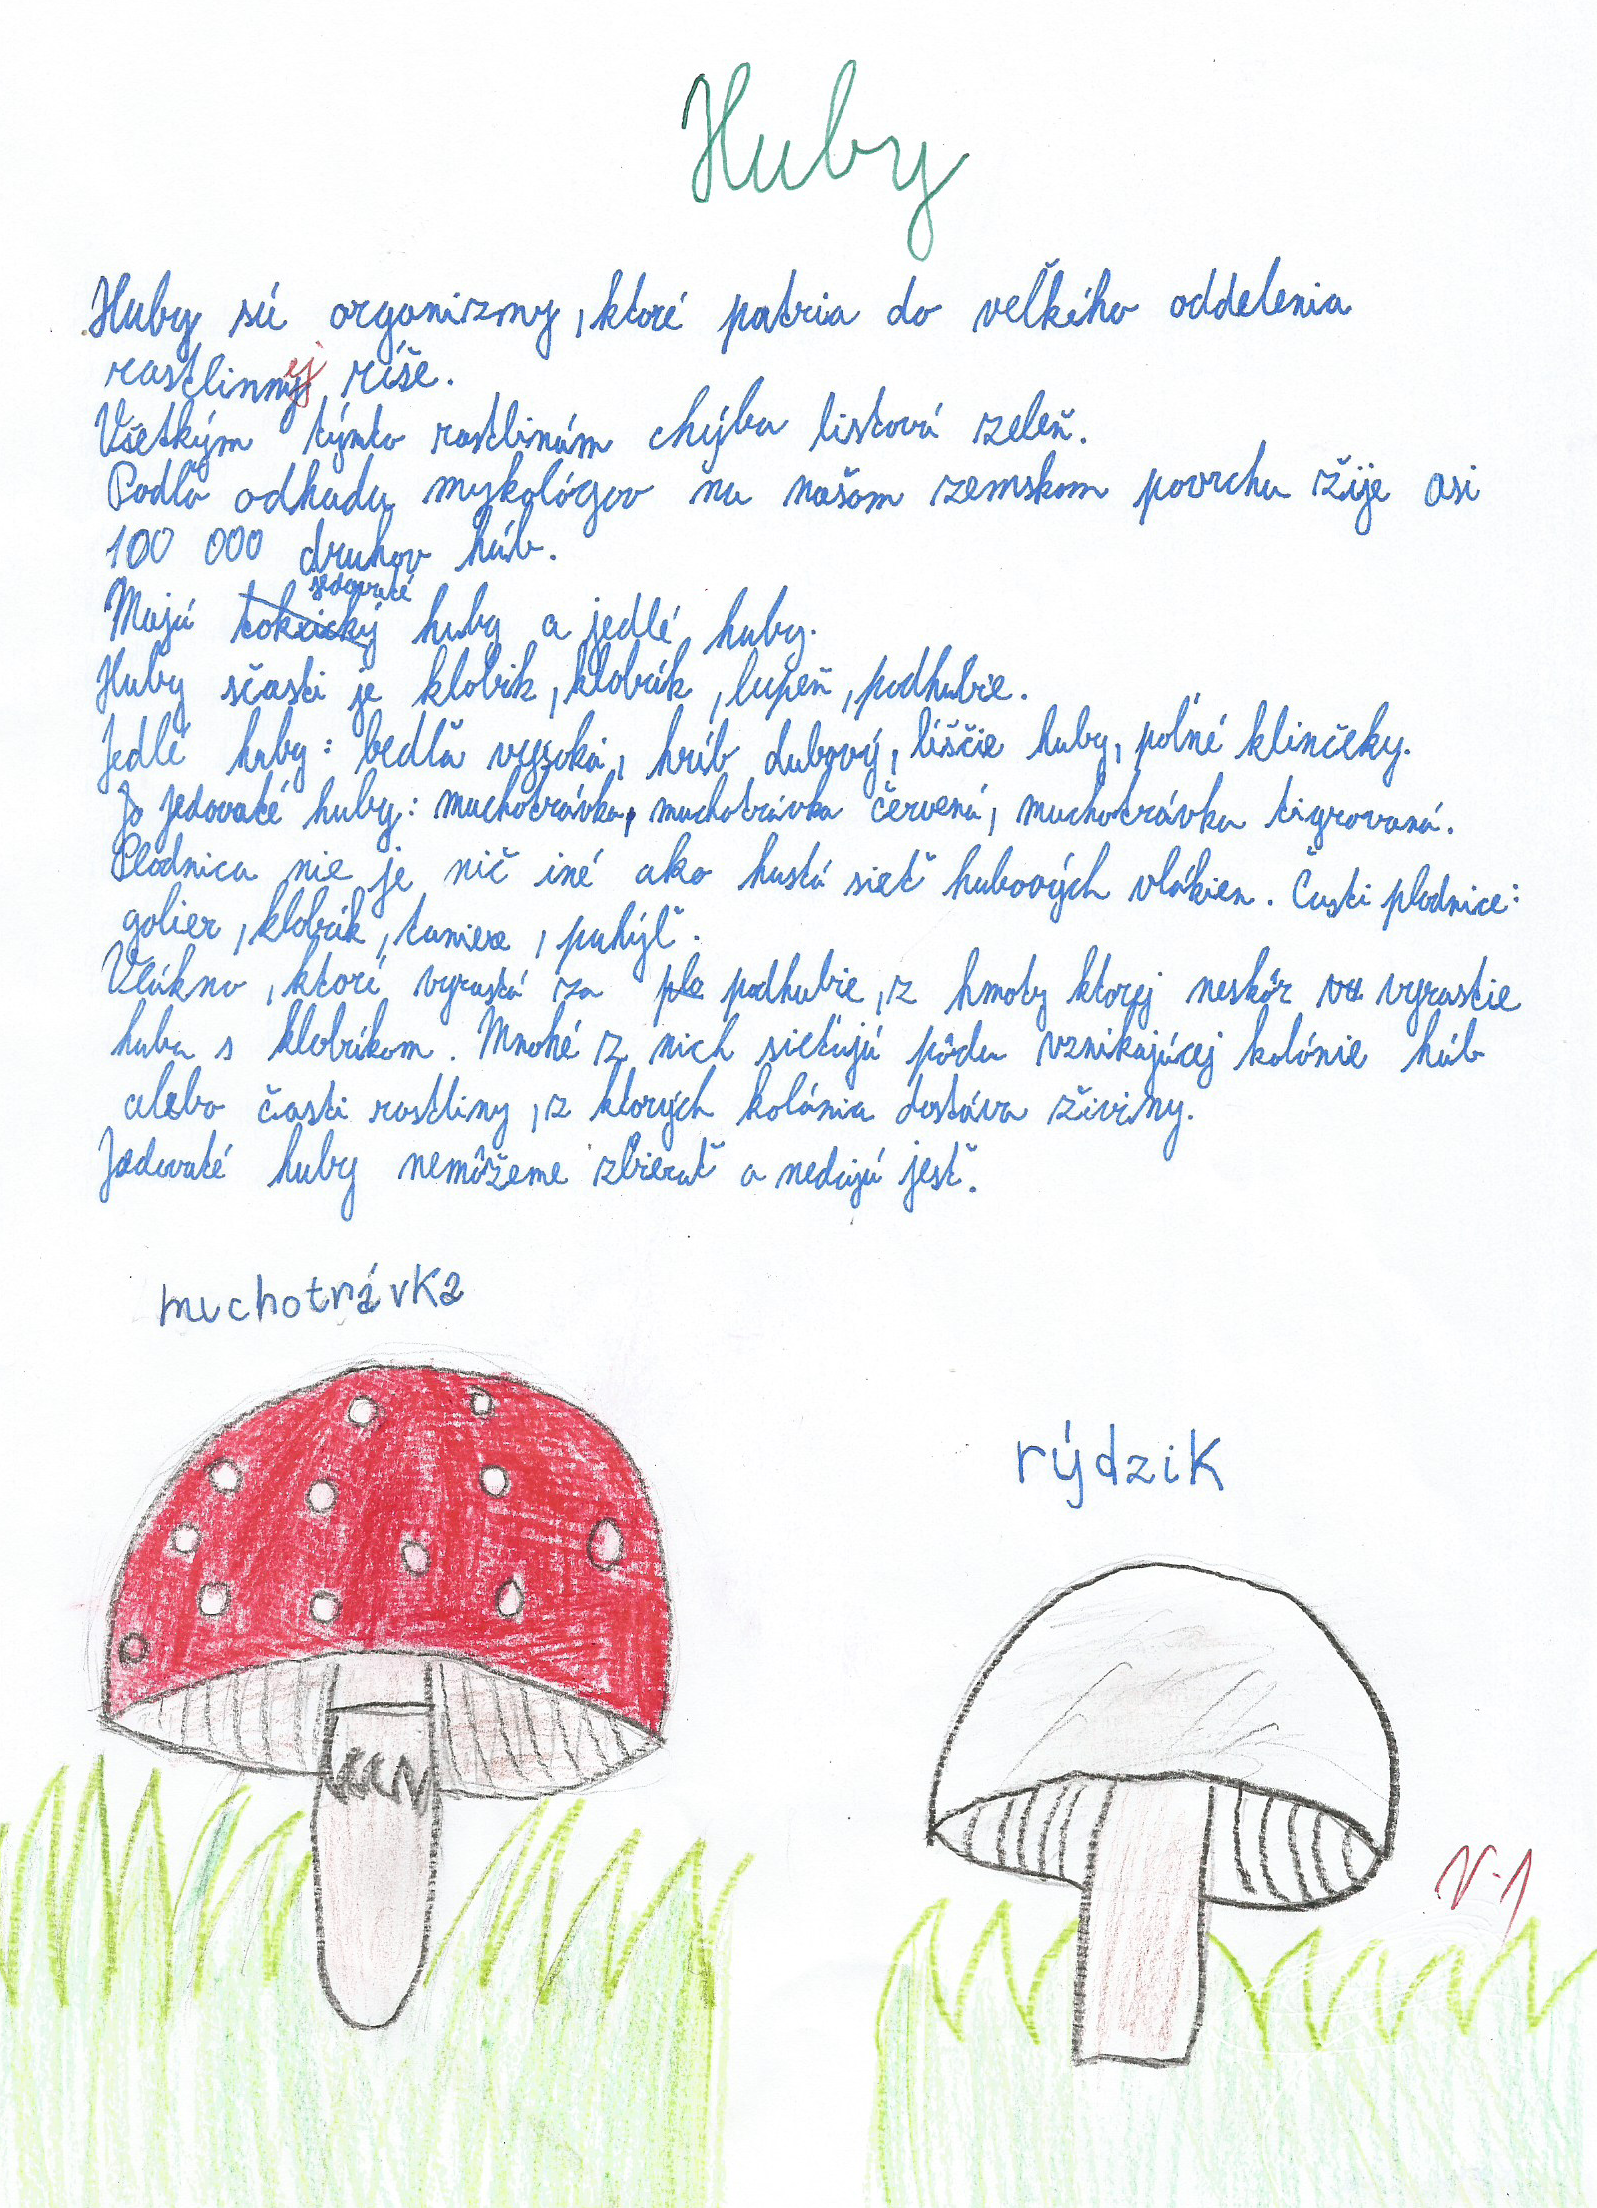 Huby
Huby sú organizmy, ktoré patria do veľkého oddelenia
rastlinnej ríše.
Všetkým týmto rastlinám chýba listová zeleň.
Podľa odhadu mykológov na našom zemskom povrchu žije asi
100 000 druhov húb.
jedovaté
Majú toxický huby a jedlé huby.
Huby sčasti je klobik, klobúk, lupeň, podhubie.
Jedlé huby: bedľa vysoká, hríb dubový, líščie huby, poľné klinčeky.
Jedovaté huby: muchotrávka, muchotrávka červená, muchotrávka tigrovaná.
Plodnica nie je nič iné ako hustá sieť hubových vlákien. Časti plodnice:
golier, klobúk, taniere, puhýľ.
Vlákno, ktoré vyrastá za podhubie, z hmoty ktorej neskôr vyrastie
huba s klobúkom. Mnohé z nich sieťajú pôdu vznikajúcej kolónie húb
alebo časti rastliny, z ktorých kolónia dostáva živiny.
Jedovaté huby nemôžeme zbierať a nedajú jesť.
muchotrávka
rýdzik